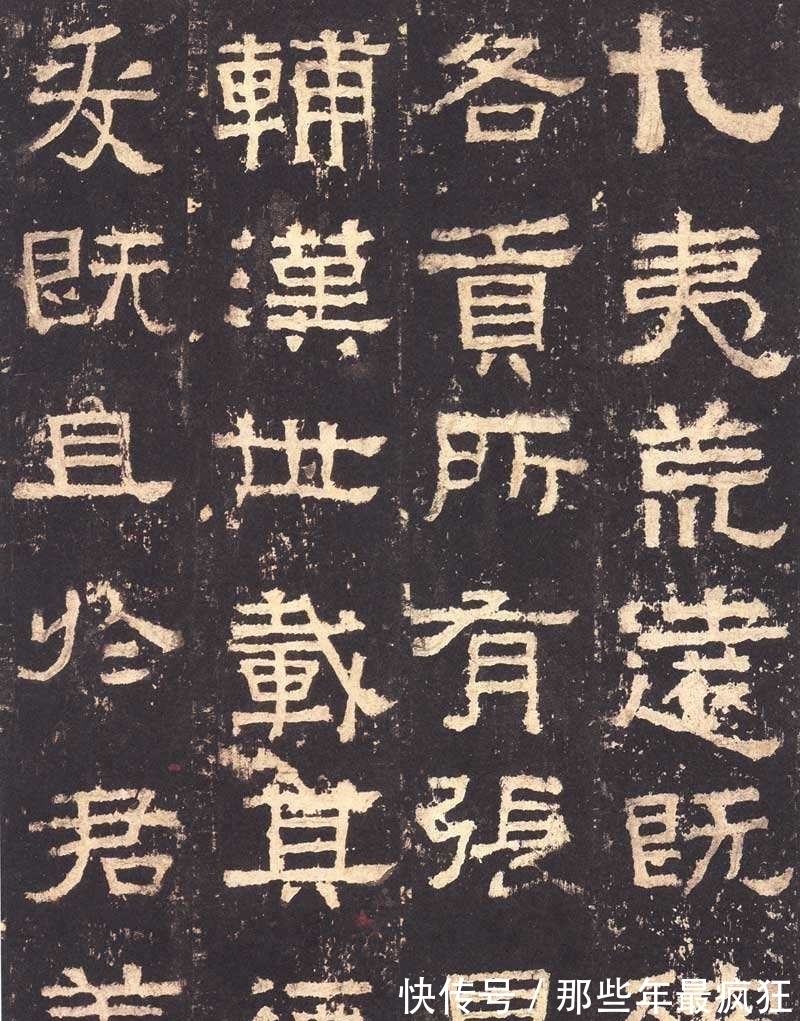 九夷荒遠既
各貢所有張
輔漢世載其
爰既且於君
快传号 / 那些年最疯狂